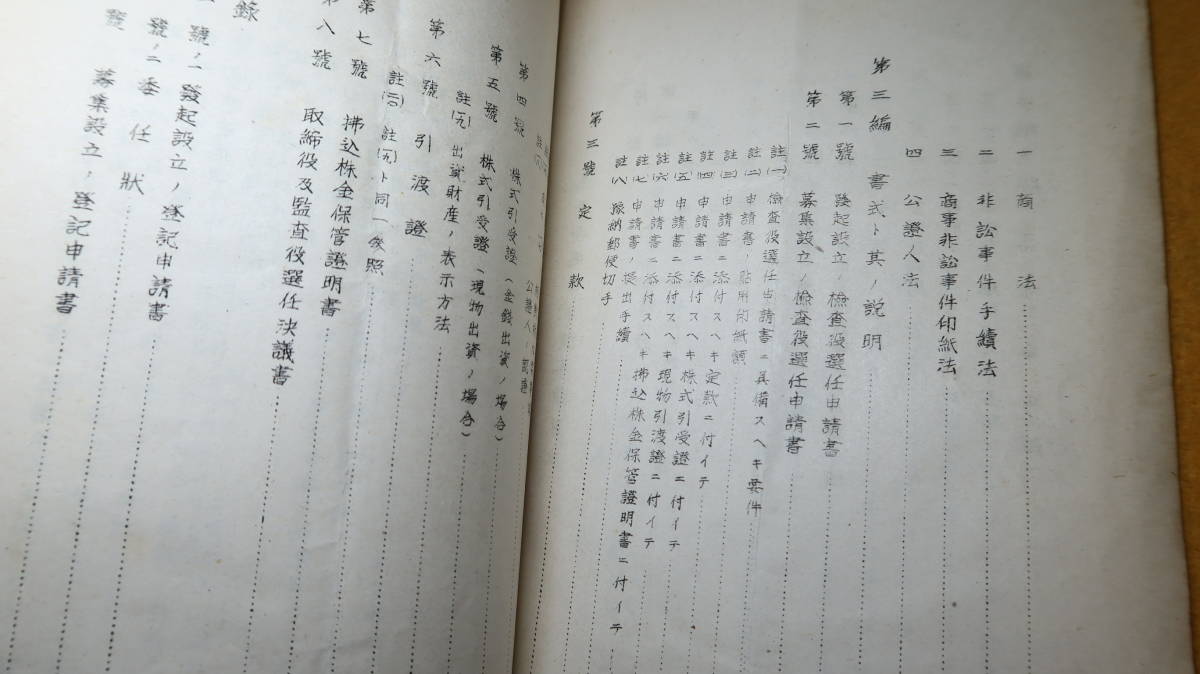 一 商法
二 非訟事件手續法
三 商事非訟事件印紙法
四 公證人法
第三編 書式ト其ノ説明
第一號 發起設立ノ檢査役選任申請書
第二號 募集設立ノ檢査役選任申請書
註(一) 檢査役選任申請書ニ具備スヘキ要件
註(二) 申請書ノ貼用印紙額
註(三) 申請書ニ添付スヘキ定款ニ付イテ
註(四) 申請書ニ添付スヘキ株式引受證ニ付イテ
註(五) 申請書ニ添付スヘキ現物引渡證ニ付イテ
註(六) 申請書ニ添付スヘキ拂込株金保管證明書ニ付イテ
註(七) 申請書ノ提出手續
註(八) 豫納郵便切手
第三號 定款
公證人ノ認證
第四號 株式引受證(金錢出資ノ場合)
第五號 株式引受證(現物出資ノ場合)
註(一九) 出資財産ノ表示方法
第六號 引渡證
註(二〇) 註(一九)ト同一參照
第七號 拂込株金保管證明書
第八號 取締役及監査役選任決議書
錄
號ノ一 發起設立ノ登記申請書
號ノ二 委任狀
號 募集設立ノ登記申請書